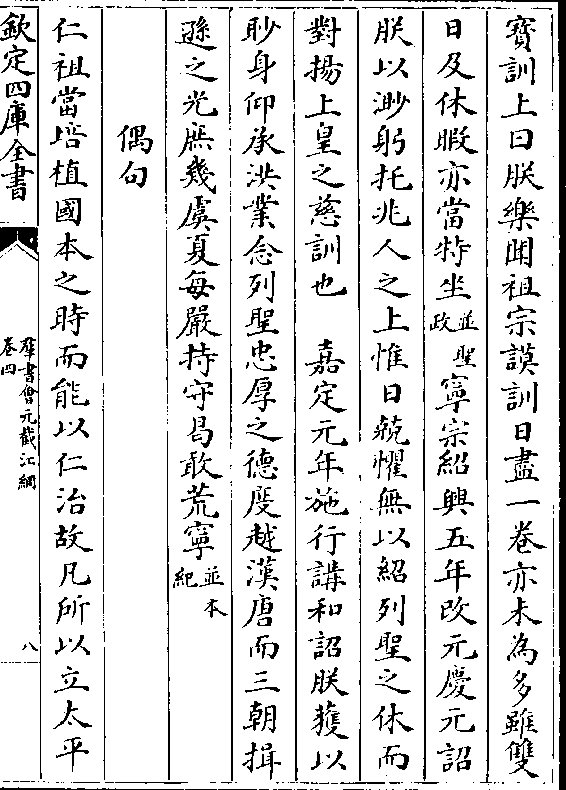 寳訓上曰朕樂聞祖宗謨訓日盡一卷亦未為多雖雙
日及休暇亦當特坐並聖政寧宗紹興五年改元慶元詔
朕以渺躬托兆人之上惟日兢懼無以紹列聖之休而
對揚上皇之慈訓也　嘉定元年施行講和詔朕獲以
眇身仰承洪業念列聖忠厚之德度越漢唐而三朝揖
遜之光庶幾虞夏每嚴持守曷敢荒寧並本紀
偶句
仁祖當培植國本之時而能以仁治故凡所以立太平
欽定四庫全書
羣書會元截江網
卷四
八